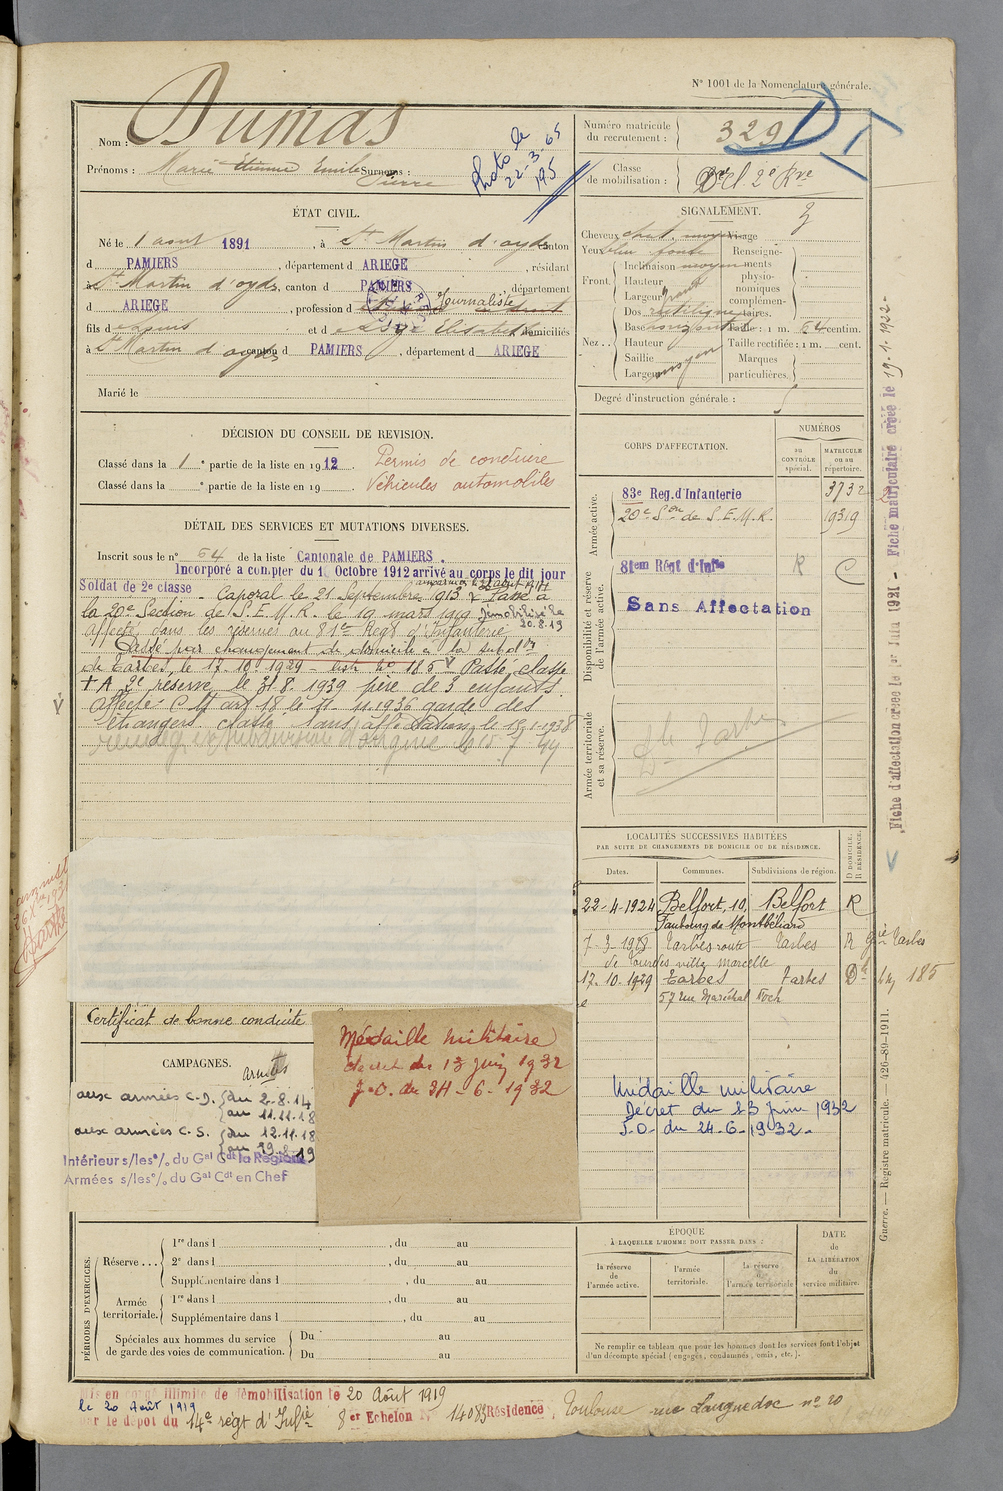 N° 1001 de la Nomenclature générale.
Nom : Dumas
Prénoms : Marie Etienne Emile Surnoms : Pierre
Photo le
22-3-65
195
Numéro matricule du recrutement : 329
Classe de mobilisation : 2e Rve
ÉTAT CIVIL.
Né le 1 aout 1891, à St Martin d'oydes canton
d PAMIERS, département d ARIEGE, résidant
à St Martin d'oydes, canton d PAMIERS, département
d ARIEGE, profession d Journaliste
fils d et d Elisabeth domiciliés
à St Martin d'oydes canton d PAMIERS, département d ARIEGE
Marié le
SIGNALEMENT.
Cheveux chat. moyen Visage
Yeux bleu foncé
Front. Inclinaison moyen
Hauteur
Largeur grand
Nez. Dos rectiligne
Base horizontale
Hauteur
Saillie
Largeur moyen
Renseignements physionomiques complémentaires.
Taille : 1 m. 64 centim.
Taille rectifiée : 1 m. cent.
Marques particulières.
Degré d'instruction générale :
DÉCISION DU CONSEIL DE REVISION.
Classé dans la 1e partie de la liste en 1912. Permis de conduire
Classé dans la e partie de la liste en 19 Véhicules automobiles
DÉTAIL DES SERVICES ET MUTATIONS DIVERSES.
Inscrit sous le n° 64 de la liste Cantonale de PAMIERS.
Incorporé a compter du 1 Octobre 1912 arrivé au corps le dit jour
Soldat de 2e classe Caporal le 21 Septembre 1913 Passé à
la 20e Section de S.E.M.R. le 19 mars 1919 Démobilisé le
20.8.19
affecté dans les réserves au 81e Regt d'Infanterie
Passé par changement de domicile à la subdon
de Tarbes, le 17.10.1929 Passé classe
+ A 2e réserve le 31.8.1939 père de 3 enfants
Affecté C.M. art 18 le 21.11.1936 garde des
étrangers classé sans affectation le 15-1-1938
CORPS D'AFFECTATION.
NUMÉROS
au CONTRÔLE spécial.
MATRICULE ou au répertoire.
Armée active.
83e Reg.d'Infanterie 3732
20e Son de S.E.M.R. 19319
Disponibilité et réserve de l'armée active.
81em Régt d'Infie R C
Sans Affectation
Armée territoriale et sa réserve.
Tarbes
Fiche matriculaire créée le 19.1.1922-
Fiche d'affectation créée le 1er Juin 1921-
LOCALITÉS SUCCESSIVES HABITÉES
PAR SUITE DE CHANGEMENTS DE DOMICILE OU DE RÉSIDENCE.
Dates. Communes. Subdivisions de région. D DOMICILE. R RÉSIDENCE.
22-4-1924 Belfort, 10, Belfort R
Faubourg de Montbéliard
7-3-1928 Tarbes route Tarbes R Tarbes
de Lourdes villa Marcelle
17.10.1929 Tarbes Tarbes D 185
57 rue Maréchal Foch
Médaille militaire
Décret du 23 Juin 1932
J.O. du 24-6-1932-
Certificat de bonne conduite
CAMPAGNES.
aux armées C.D. du 2-8-14
au 11.11.18
aux armées C.S. du 12.11.18
au 19-8-19
Intérieur s/les °/. du Gal Cdt la Région
Armées s/les °/. du Gal Cdt en Chef
Médaille militaire
décret du 13 juin 1932
J.O. du 24-6-1932
Guerre. — Registre matricule. — 426-89-1911.
PÉRIODES D'EXERCICES.
Réserve...
1re dans l , du au
2e dans l , du au
Supplémentaire dans l , du au
Armée territoriale.
1re dans l , du au
Supplémentaire dans l , du au
Spéciales aux hommes du service de garde des voies de communication.
Du au
Du au
ÉPOQUE
À LAQUELLE L'HOMME DOIT PASSER DANS :
la réserve de l'armée active.
l'armée territoriale.
la réserve de l'armée territoriale
DATE DE LA LIBÉRATION du service militaire.
Ne remplir ce tableau que pour les hommes dont les services font l'objet
d'un décompte spécial (engagés, condamnés, omis, etc.).
Mis en congé illimité de démobilisation le 20 Août 1919
le 20 Août 1919
par le dépôt du 14e régt d'Infie 8er Echelon N° 14083 Résidence, Toulouse rue Languedoc n° 20